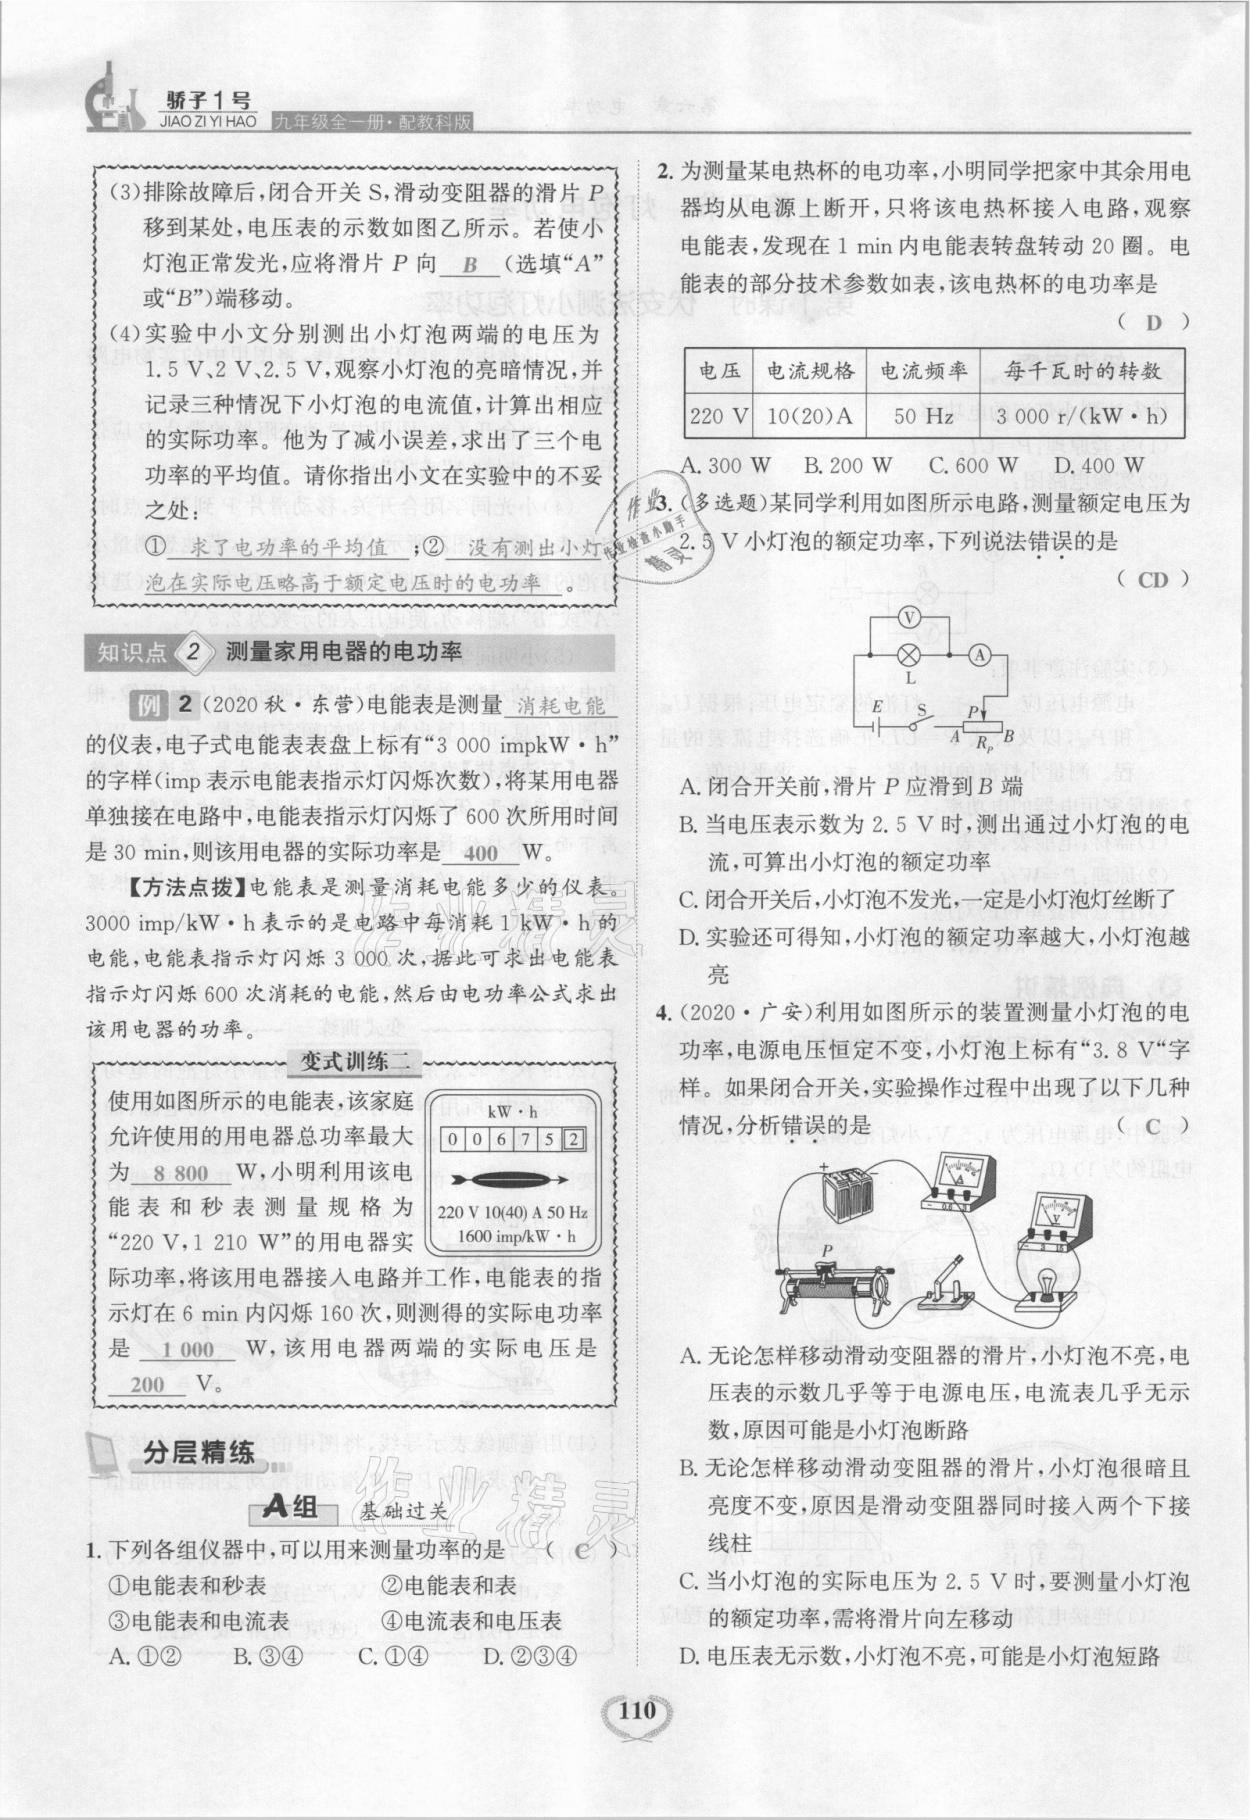 骄子1号
JIAO ZI YI HAO
九年级全一册·配教科版
(3)排除故障后,闭合开关 S,滑动变阻器的滑片 P
移到某处,电压表的示数如图乙所示。若使小
灯泡正常发光,应将滑片 P 向 B (选填“A”
或“B”)端移动。
(4)实验中小文分别测出小灯泡两端的电压为
1.5 V、2 V、2.5 V,观察小灯泡的亮暗情况,并
记录三种情况下小灯泡的电流值,计算出相应
的实际功率。他为了减小误差,求出了三个电
功率的平均值。请你指出小文在实验中的不妥
之处:
① 求了电功率的平均值 ;② 没有测出小灯
泡在实际电压略高于额定电压时的电功率 。
知识点 2 测量家用电器的电功率
例 2 (2020 秋·东营)电能表是测量 消耗电能
的仪表,电子式电能表表盘上标有“3 000 impkW·h”
的字样(imp 表示电能表指示灯闪烁次数),将某用电器
单独接在电路中,电能表指示灯闪烁了 600 次所用时间
是 30 min,则该用电器的实际功率是 400 W。
【方法点拨】电能表是测量消耗电能多少的仪表。
3000 imp/kW·h 表示的是电路中每消耗 1 kW·h 的
电能,电能表指示灯闪烁 3 000 次,据此可求出电能表
指示灯闪烁 600 次消耗的电能,然后由电功率公式求出
该用电器的功率。
变式训练二
使用如图所示的电能表,该家庭
允许使用的用电器总功率最大
为 8 800 W,小明利用该电
能表和秒表测量规格为
“220 V,1 210 W”的用电器实
际功率,将该用电器接入电路并工作,电能表的指
示灯在 6 min 内闪烁 160 次,则测得的实际电功率
是 1 000 W,该用电器两端的实际电压是
200 V。
kW·h
0 0 6 7 5 2
220 V 10(40) A 50 Hz
1600 imp/kW·h
分层精练
A组 基础过关
1. 下列各组仪器中,可以用来测量功率的是 ( C )
①电能表和秒表 ②电能表和表
③电能表和电流表 ④电流表和电压表
A. ①② B. ③④ C. ①④ D. ②③④
2. 为测量某电热杯的电功率,小明同学把家中其余用电
器均从电源上断开,只将该电热杯接入电路,观察
电能表,发现在 1 min 内电能表转盘转动 20 圈。电
能表的部分技术参数如表,该电热杯的电功率是
( D )
电压 电流规格 电流频率 每千瓦时的转数
220 V 10(20)A 50 Hz 3 000 r/(kW·h)
A. 300 W B. 200 W C. 600 W D. 400 W
3. (多选题)某同学利用如图所示电路,测量额定电压为
2.5 V 小灯泡的额定功率,下列说法错误的是
( CD )
V
L
A
E S A P B
R_P
A. 闭合开关前,滑片 P 应滑到 B 端
B. 当电压表示数为 2.5 V 时,测出通过小灯泡的电
流,可算出小灯泡的额定功率
C. 闭合开关后,小灯泡不发光,一定是小灯泡灯丝断了
D. 实验还可得知,小灯泡的额定功率越大,小灯泡越
亮
4. (2020·广安)利用如图所示的装置测量小灯泡的电
功率,电源电压恒定不变,小灯泡上标有“3.8 V”字
样。如果闭合开关,实验操作过程中出现了以下几种
情况,分析错误的是 ( C )
+ −
A
− 0.6 3
V
− 3 15
P
A. 无论怎样移动滑动变阻器的滑片,小灯泡不亮,电
压表的示数几乎等于电源电压,电流表几乎无示
数,原因可能是小灯泡断路
B. 无论怎样移动滑动变阻器的滑片,小灯泡很暗且
亮度不变,原因是滑动变阻器同时接入两个下接
线柱
C. 当小灯泡的实际电压为 2.5 V 时,要测量小灯泡
的额定功率,需将滑片向左移动
D. 电压表无示数,小灯泡不亮,可能是小灯泡短路
作业
作业检查小助手
精灵
作业精灵
作业精灵
110